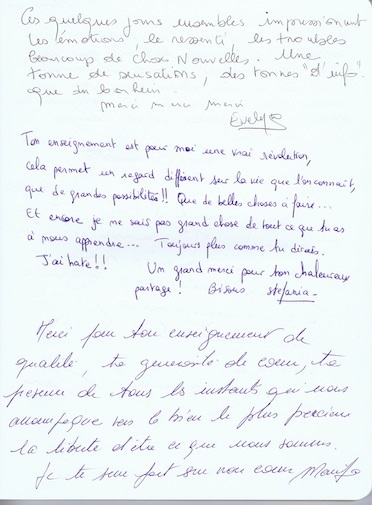 Ces quelques jours ensembles impressionnant
les émotions, le ressenti, les troubles
Beaucoup de choses Nouvelles. Une
tonne de sensations, des tonnes "d'info".
que du bonheur.
merci merci merci
Evelyne
Ton enseignement est pour moi une vrai révolution,
cela permet un regard différent sur la vie que l'on connait,
que de grandes possibilités!! Que de belles choses à faire...
Et encore je ne sais pas grand chose de tout ce que tu as
à nous apprendre... Toujours plus comme tu dirais.
J'ai hate!!
Un grand merci pour ton chaleureux
partage! Bisous stefania.
Merci pour ton enseignement de
qualité, ta generosité de coeur, ta
présence de tous les instants qui nous
accompagne vers le bien le plus precieux
la liberté d'être ce que nous sommes.
Je te serre fort sur mon coeur